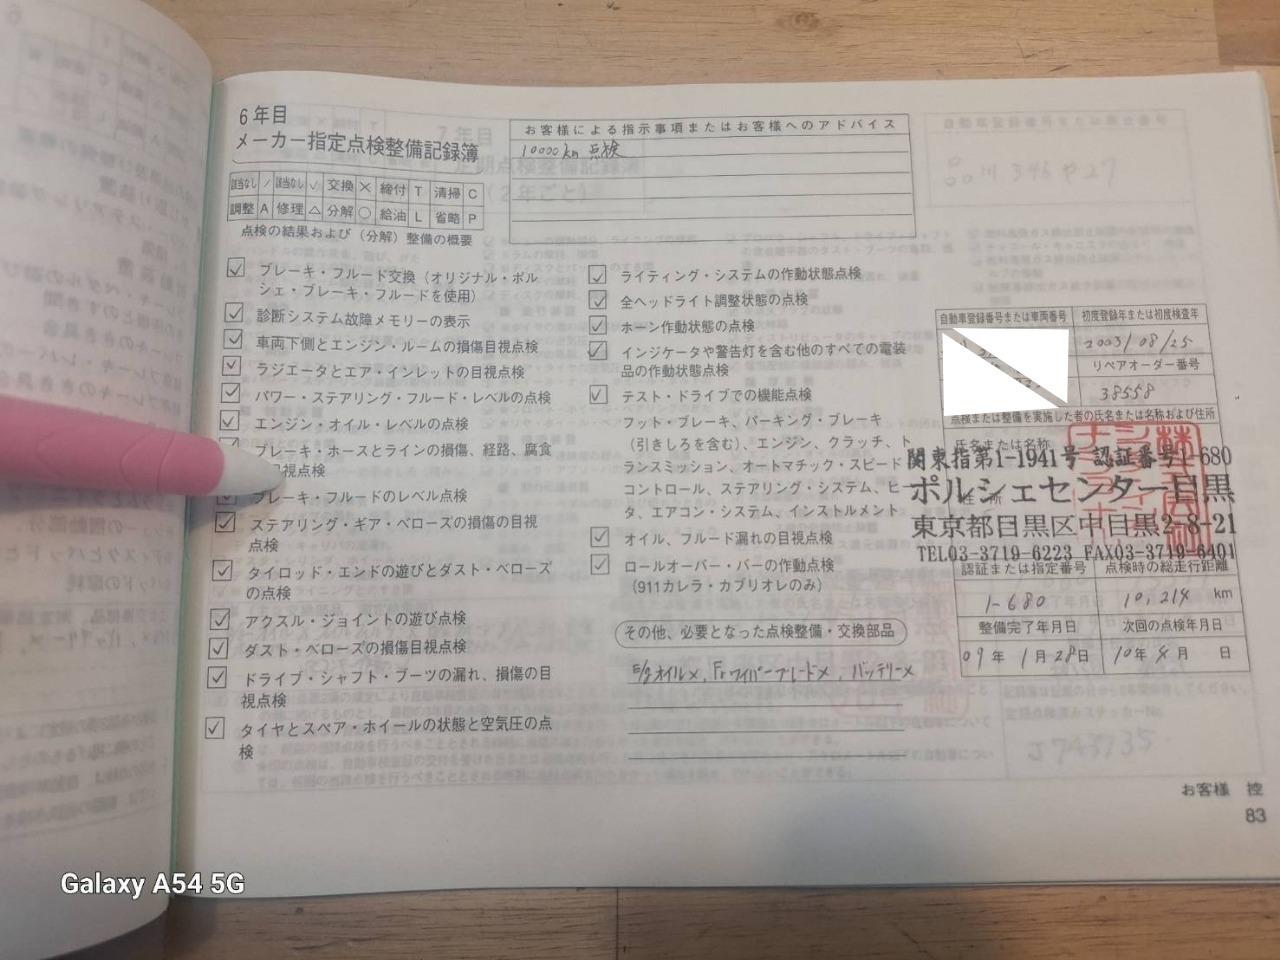 6年目
メーカー指定点検整備記録簿
該当なし / 該当なし ✓ 交換 × 締付 T 清掃 C
調整 A 修理 △ 分解 ○ 給油 L 省略 P
点検の結果および（分解）整備の概要
お客様による指示事項またはお客様へのアドバイス
10000km 点検
ブレーキ・フルード交換（オリジナル・ポル
シェ・ブレーキ・フルードを使用）
診断システム故障メモリーの表示
車両下側とエンジン・ルームの損傷目視点検
ラジエータとエア・インレットの目視点検
パワー・ステアリング・フルード・レベルの点検
エンジン・オイル・レベルの点検
ブレーキ・ホースとラインの損傷、経路、腐食
視点検
ブレーキ・フルードのレベル点検
ステアリング・ギア・ベローズの損傷の目視
点検
タイロッド・エンドの遊びとダスト・ベローズ
の点検
アクスル・ジョイントの遊び点検
ダスト・ベローズの損傷目視点検
ドライブ・シャフト・ブーツの漏れ、損傷の目
視点検
タイヤとスペア・ホイールの状態と空気圧の点
検
ライティング・システムの作動状態点検
全ヘッドライト調整状態の点検
ホーン作動状態の点検
インジケータや警告灯を含む他のすべての電装
品の作動状態点検
テスト・ドライブでの機能点検
フット・ブレーキ、パーキング・ブレーキ
（引きしろを含む）、エンジン、クラッチ、ト
ランスミッション、オートマチック・スピード
コントロール、ステアリング・システム、ヒー
タ、エアコン・システム、インストルメント
オイル、フルード漏れの目視点検
ロールオーバー・バーの作動点検
（911カレラ・カブリオレのみ）
その他、必要となった点検整備・交換部品
E/gオイル×, Frワイパーブレード×, バッテリー×
自動車登録番号または車両番号 初度登録年または初度検査年
2003/08/25
リペアオーダー番号
38558
点検または整備を実施した者の氏名または名称および住所
氏名または名称
関東指第1-1941号 認証番号1-680
ポルシェセンター目黒
東京都目黒区中目黒2-8-21
TEL03-3719-6223 FAX03-3719-6401
認証または指定番号 点検時の総走行距離
1-680 10,214 km
整備完了年月日 次回の点検年月日
09年 1月 28日 10年 8月 日
お客様 控
83
Galaxy A54 5G